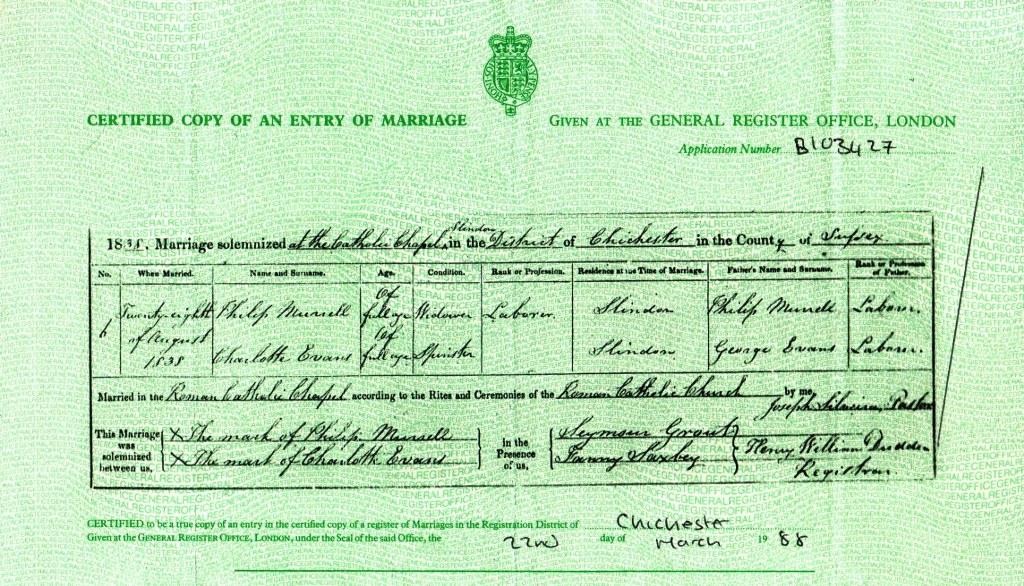 CERTIFIED COPY OF AN ENTRY OF MARRIAGE
GIVEN AT THE GENERAL REGISTER OFFICE, LONDON
Application Number B103427
1838. Marriage solemnized at the Catholic Chapel Slindon in the District of Chichester in the County of Sussex
No. When Married. Name and Surname. Age. Condition. Rank or Profession. Residence at the Time of Marriage. Father's Name and Surname. Rank or Profession of Father.
6 Twenty eighth of August 1838
Philip Of full age Widower Laborer. Slindon Philip Laborer.
Charlotte Evans Of full age Spinster Slindon George Evans Laborer.
Married in the Roman Catholic Chapel according to the Rites and Ceremonies of the Roman Catholic Church by me, Joseph Pastor
This Marriage was solemnized between us,
X The mark of Philip
X The mark of Charlotte Evans
in the Presence of us,
Seymour Grout
Fanny Saxbey
Henry William
Registrar
CERTIFIED to be a true copy of an entry in the certified copy of a register of Marriages in the Registration District of Chichester
Given at the GENERAL REGISTER OFFICE, LONDON, under the Seal of the said Office, the 22nd day of March 1988